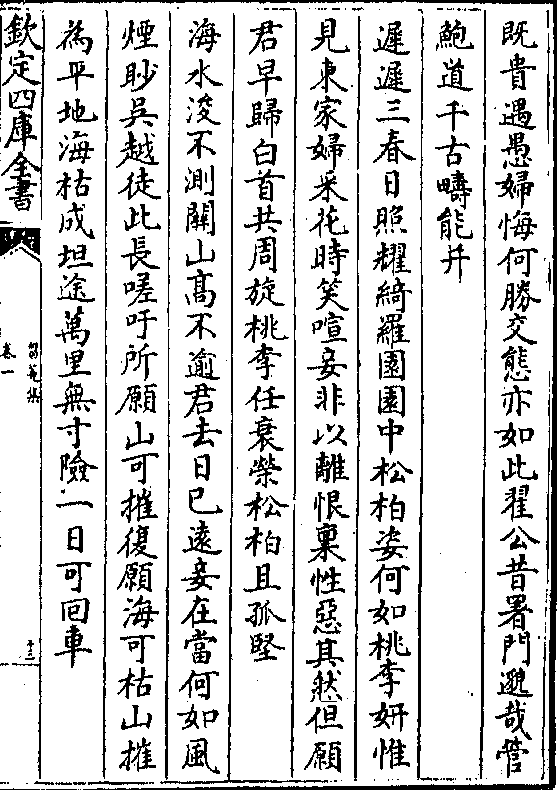 既貴遇愚婦悔何勝交態亦如此翟公昔署門邈哉管
鮑道千古疇能并
遲遲三春日照耀綺羅園園中松柏姿何如桃李妍惟
見東家婦采花時笑喧妾非以離恨稟性惡其然但願
君早歸白首共周旋桃李任衰榮松柏且孤堅
海水深不測關山髙不逾君去日已遠妾在當何如風
煙眇吳越徒此長嗟吁所願山可摧復願海可枯山摧
為平地海枯成坦途萬里無寸險一日可回車
欽定四庫全書
卷一
十三